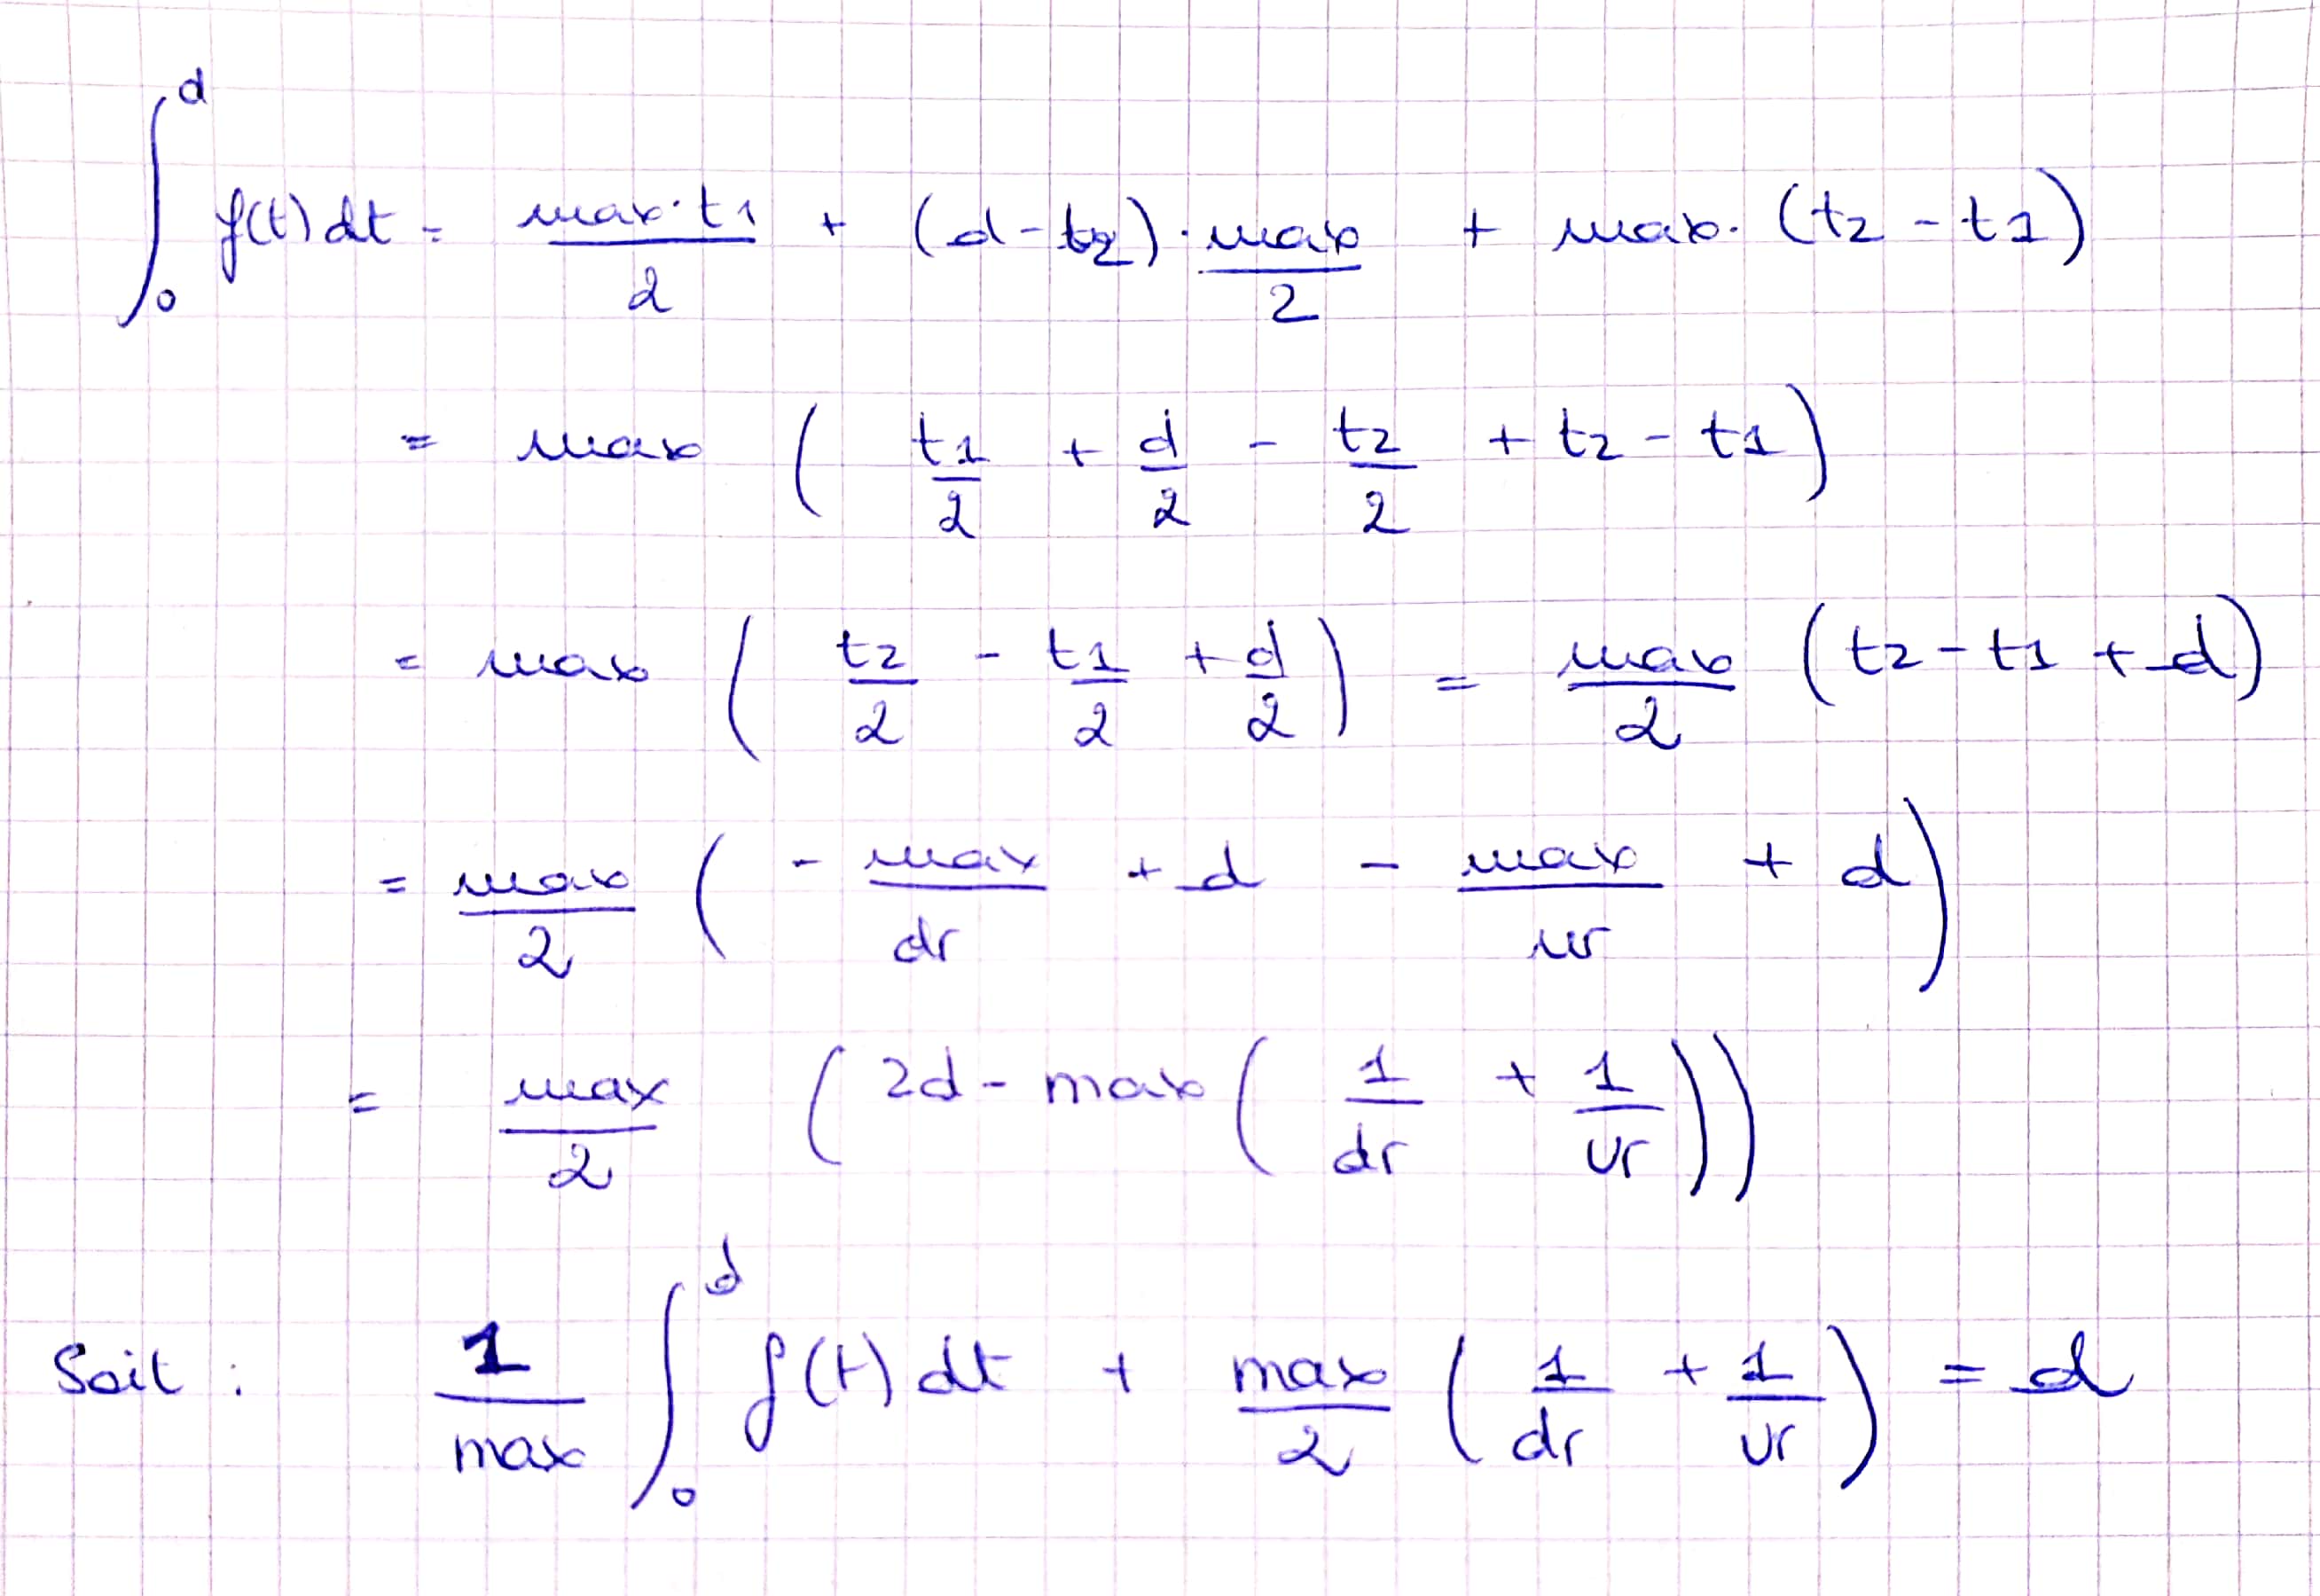 ∫₀ᵈ f(t) dt = max·t1/2 + (d - t2)·max/2 + max·(t2 - t1)
= max (t1/2 + d/2 - t2/2 + t2 - t1)
= max (t2/2 - t1/2 + d/2) = max/2 (t2 - t1 + d)
= max/2 (- max/dr + d - max/ur + d)
= max/2 (2d - max (1/dr + 1/ur))
Soit : 1/max ∫₀ᵈ f(t) dt + max/2 (1/dr + 1/ur) = d